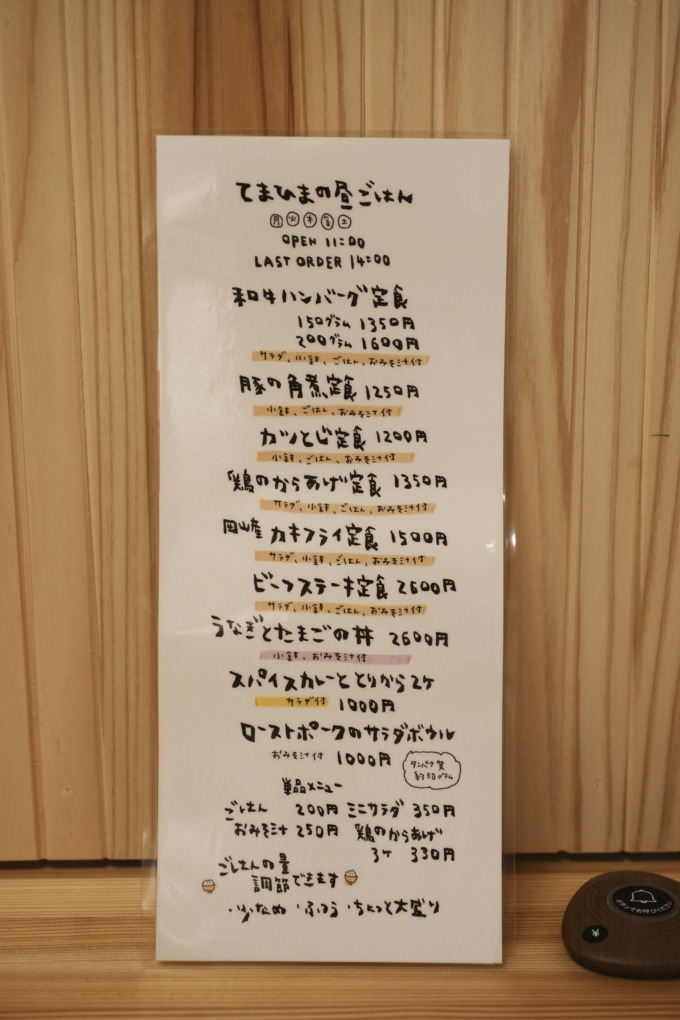 てまひまの昼ごはん
月 火 木 金 土
OPEN 11:00
LAST ORDER 14:00
和牛ハンバーグ定食
150グラム 1350円
200グラム 1600円
サラダ、小鉢、ごはん、おみそ汁付
豚の角煮定食 1250円
小鉢、ごはん、おみそ汁付
カツとじ定食 1200円
小鉢、ごはん、おみそ汁付
鶏のからあげ定食 1350円
サラダ、小鉢、ごはん、おみそ汁付
岡山産 カキフライ定食 1500円
サラダ、小鉢、ごはん、おみそ汁付
ビーフステーキ定食 2600円
サラダ、小鉢、ごはん、おみそ汁付
うなぎとたまごの丼 2600円
小鉢、おみそ汁付
スパイスカレーととりから2ケ
サラダ付 1000円
ローストポークのサラダボウル
おみそ汁付 1000円
タンパク質
約30グラム
単品メニュー
ごはん 200円 ミニサラダ 350円
おみそ汁 250円 鶏のからあげ
3ケ 330円
ごはんの量
調節できます
・少なめ ・ふつう ・ちょっと大盛り
ボタンでお呼びください
¥